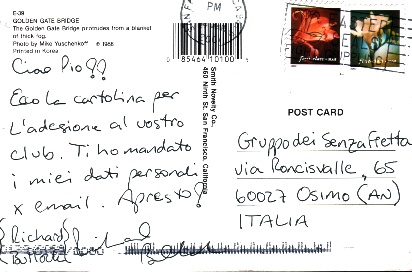 E-39
GOLDEN GATE BRIDGE
The Golden Gate Bridge protrudes from a blanket
of thick fog.
Photo by Mike Yuschenko © 1988
Printed in Korea
PM
0 85464 10100
Smith Novelty Co.
460 Ninth St. San Francisco, California
Ciao Pio!!
Ecco la cartolina per
L'adesione al vostro
club. Ti ho mandato
i miei dati personali
x email. A presto!
(Richard)
POST CARD
Gruppo dei Senza Fretta
via Roncisvalle, 65
60027 Osimo (AN)
ITALIA